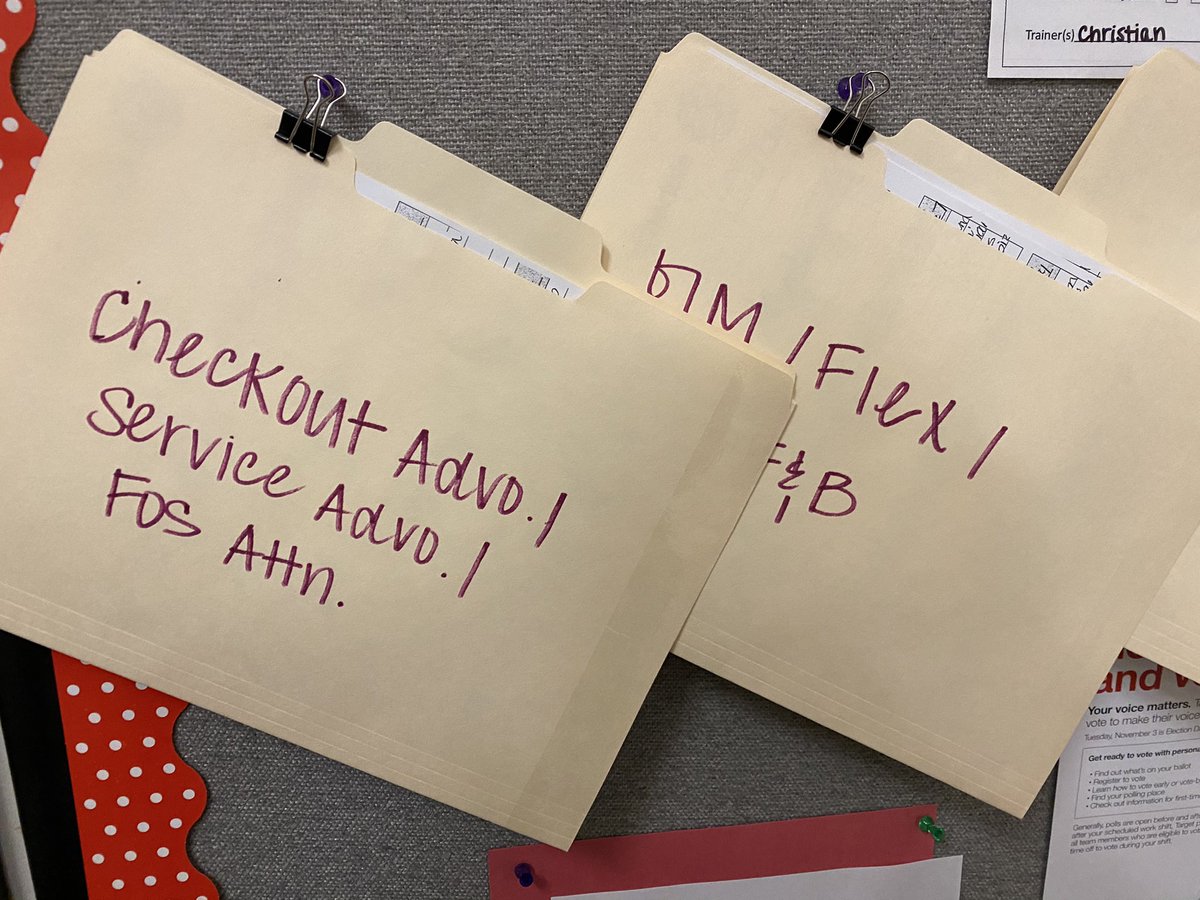 Trainer(s) Christian
Checkout Advo. /
Service Advo. /
FOS Attn.
/ Flex /
& B
and
Your voice matters.
vote to make their voice
Tuesday, November 3 is Election
Get ready to vote with
• Find out what's on your ballot
• Register to vote
• Learn how to vote early or
• Find your polling place
• Check out information for
Generally, polls are open before and
after your scheduled work shift, Target
all team members who are eligible to
time off to vote during your shift.